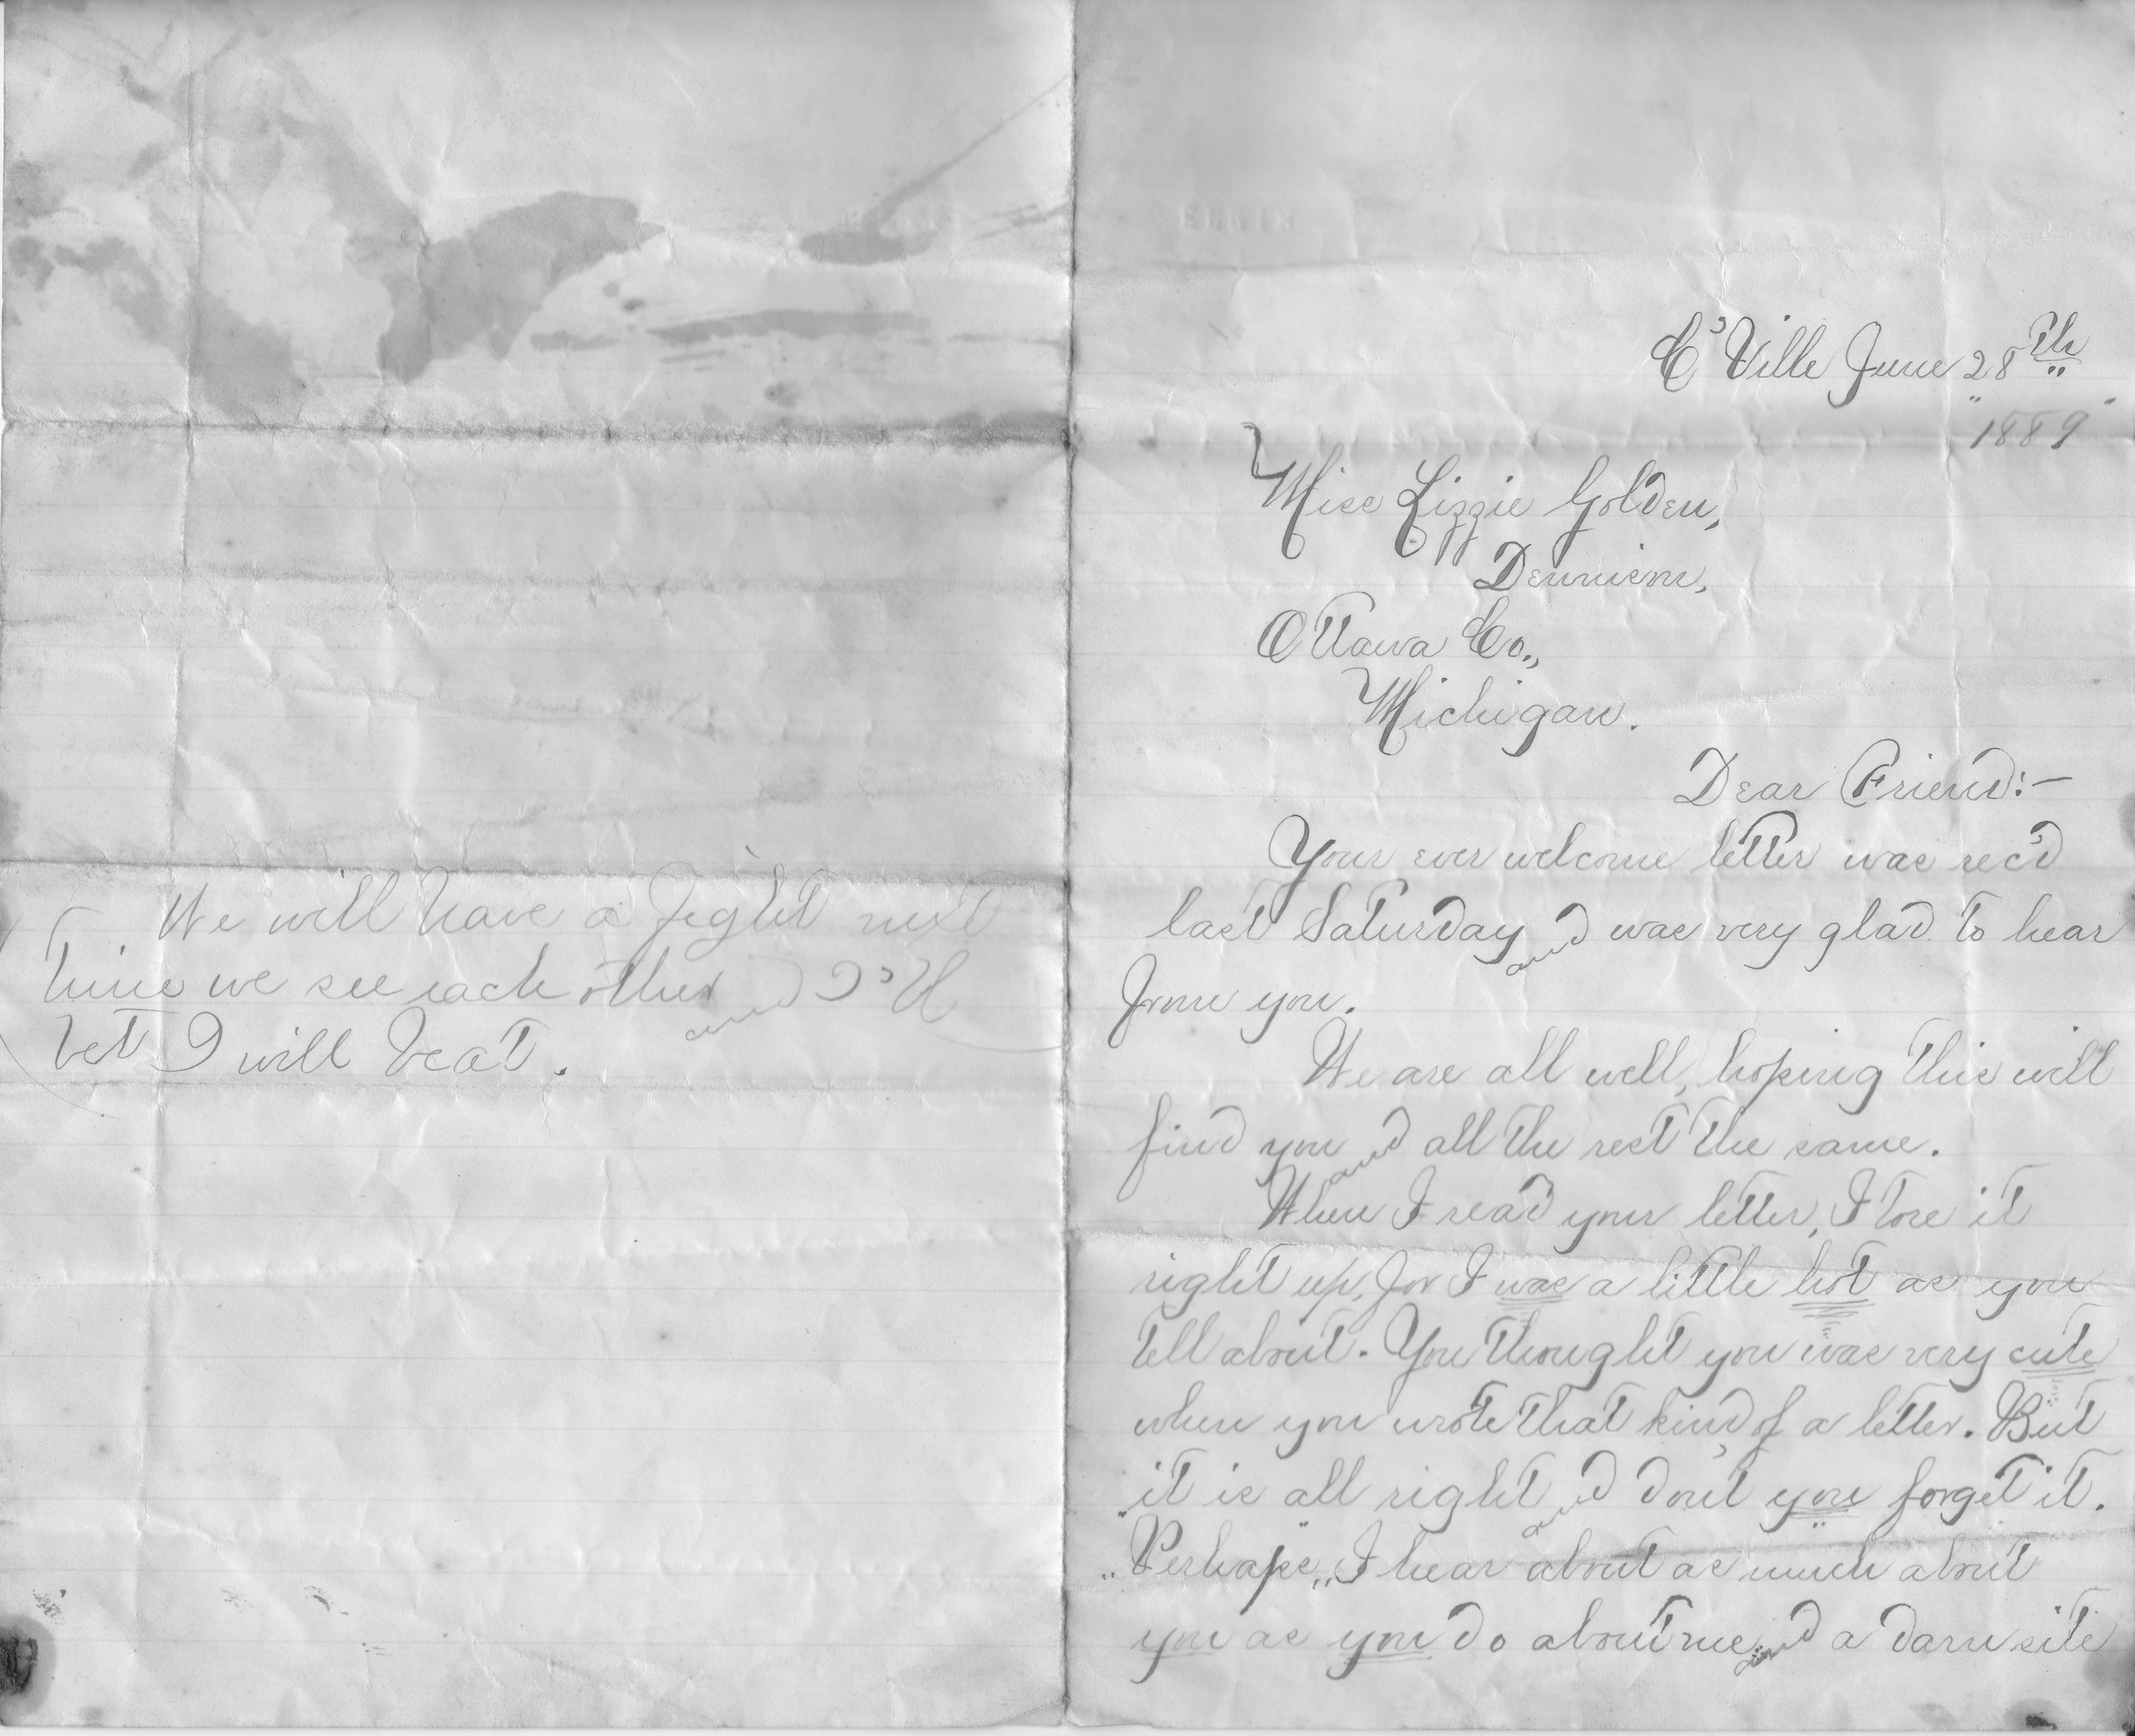 ELGIN
C'Ville June 28th
"1889"
Miss Lizzie Golden,
Dennison,
Ottawa Co.,
Michigan.
Dear Friend:—
Your ever welcome letter was rec'd
last Saturday and was very glad to hear
from you.
We are all well, hoping this will
find you and all the rest the same.
When I read your letter, I tore it
right up, for I was a little hot as you
tell about. You thought you was very cute
when you wrote that kind of a letter. But
"it is all right" and don't you forget it.
"Perhaps" I hear about as much about
you as you do about me and a darn site
We will have a fight next
time we see each other and
bet I will beat.